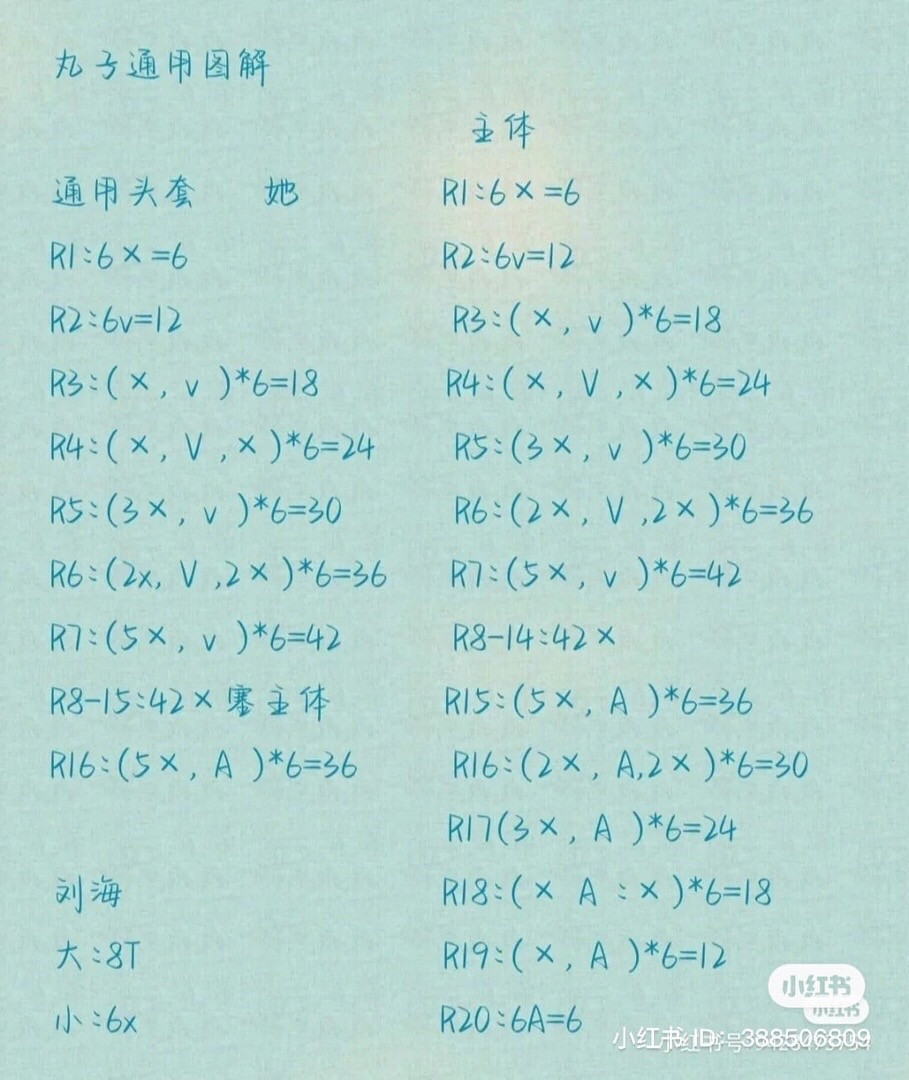 丸子通用图解
通用头套 她
R1:6×=6
R2:6v=12
R3:(×,v)*6=18
R4:(×,V,×)*6=24
R5:(3×,v)*6=30
R6:(2x,V,2×)*6=36
R7:(5×,v)*6=42
R8-15:42×塞主体
R16:(5×,A)*6=36
刘海
大:8T
小:6x
主体
R1:6×=6
R2:6v=12
R3:(×,v)*6=18
R4:(×,V,×)*6=24
R5:(3×,v)*6=30
R6:(2×,V,2×)*6=36
R7:(5×,v)*6=42
R8-14:42×
R15:(5×,A)*6=36
R16:(2×,A,2×)*6=30
R17(3×,A)*6=24
R18:(× A:×)*6=18
R19:(×,A)*6=12
R20:6A=6
小红书
小红书
小红书 ID: 388506809